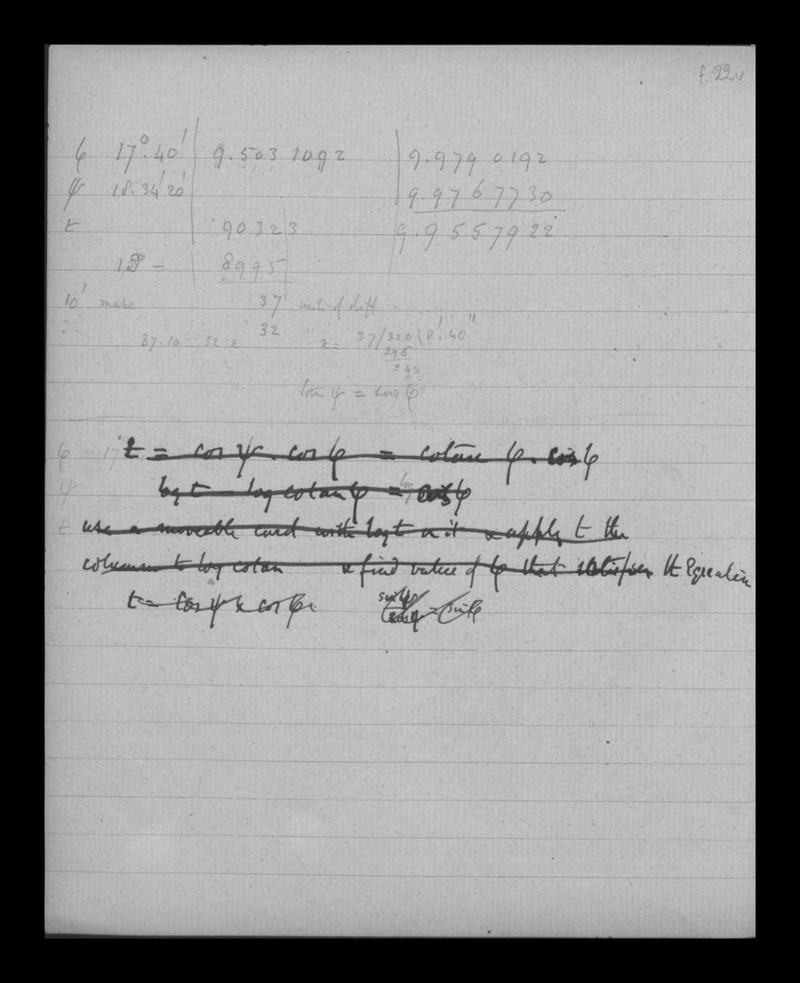 f. 22v
φ 17°.40' 9.503 1092 9.979 0192
ψ 18.34'20' 9.976 7730
t 90323 9.9557922
18° = 8995
10' make 37 unit of diff
32
37.10 = 32.x x = 37/320(8'.40"
296
240
tan ψ = sin φ
φ 17
t = cos ψ. cos φ = cotan φ. cos φ
ψ
log t - log cotan φ = log cos φ
t use a moveable card with log t on it & apply to the
columns to log cotan & find value of φ that satisfies the Equation
t = cos ψ x cos φ. sin φ
tan φ = sin φ